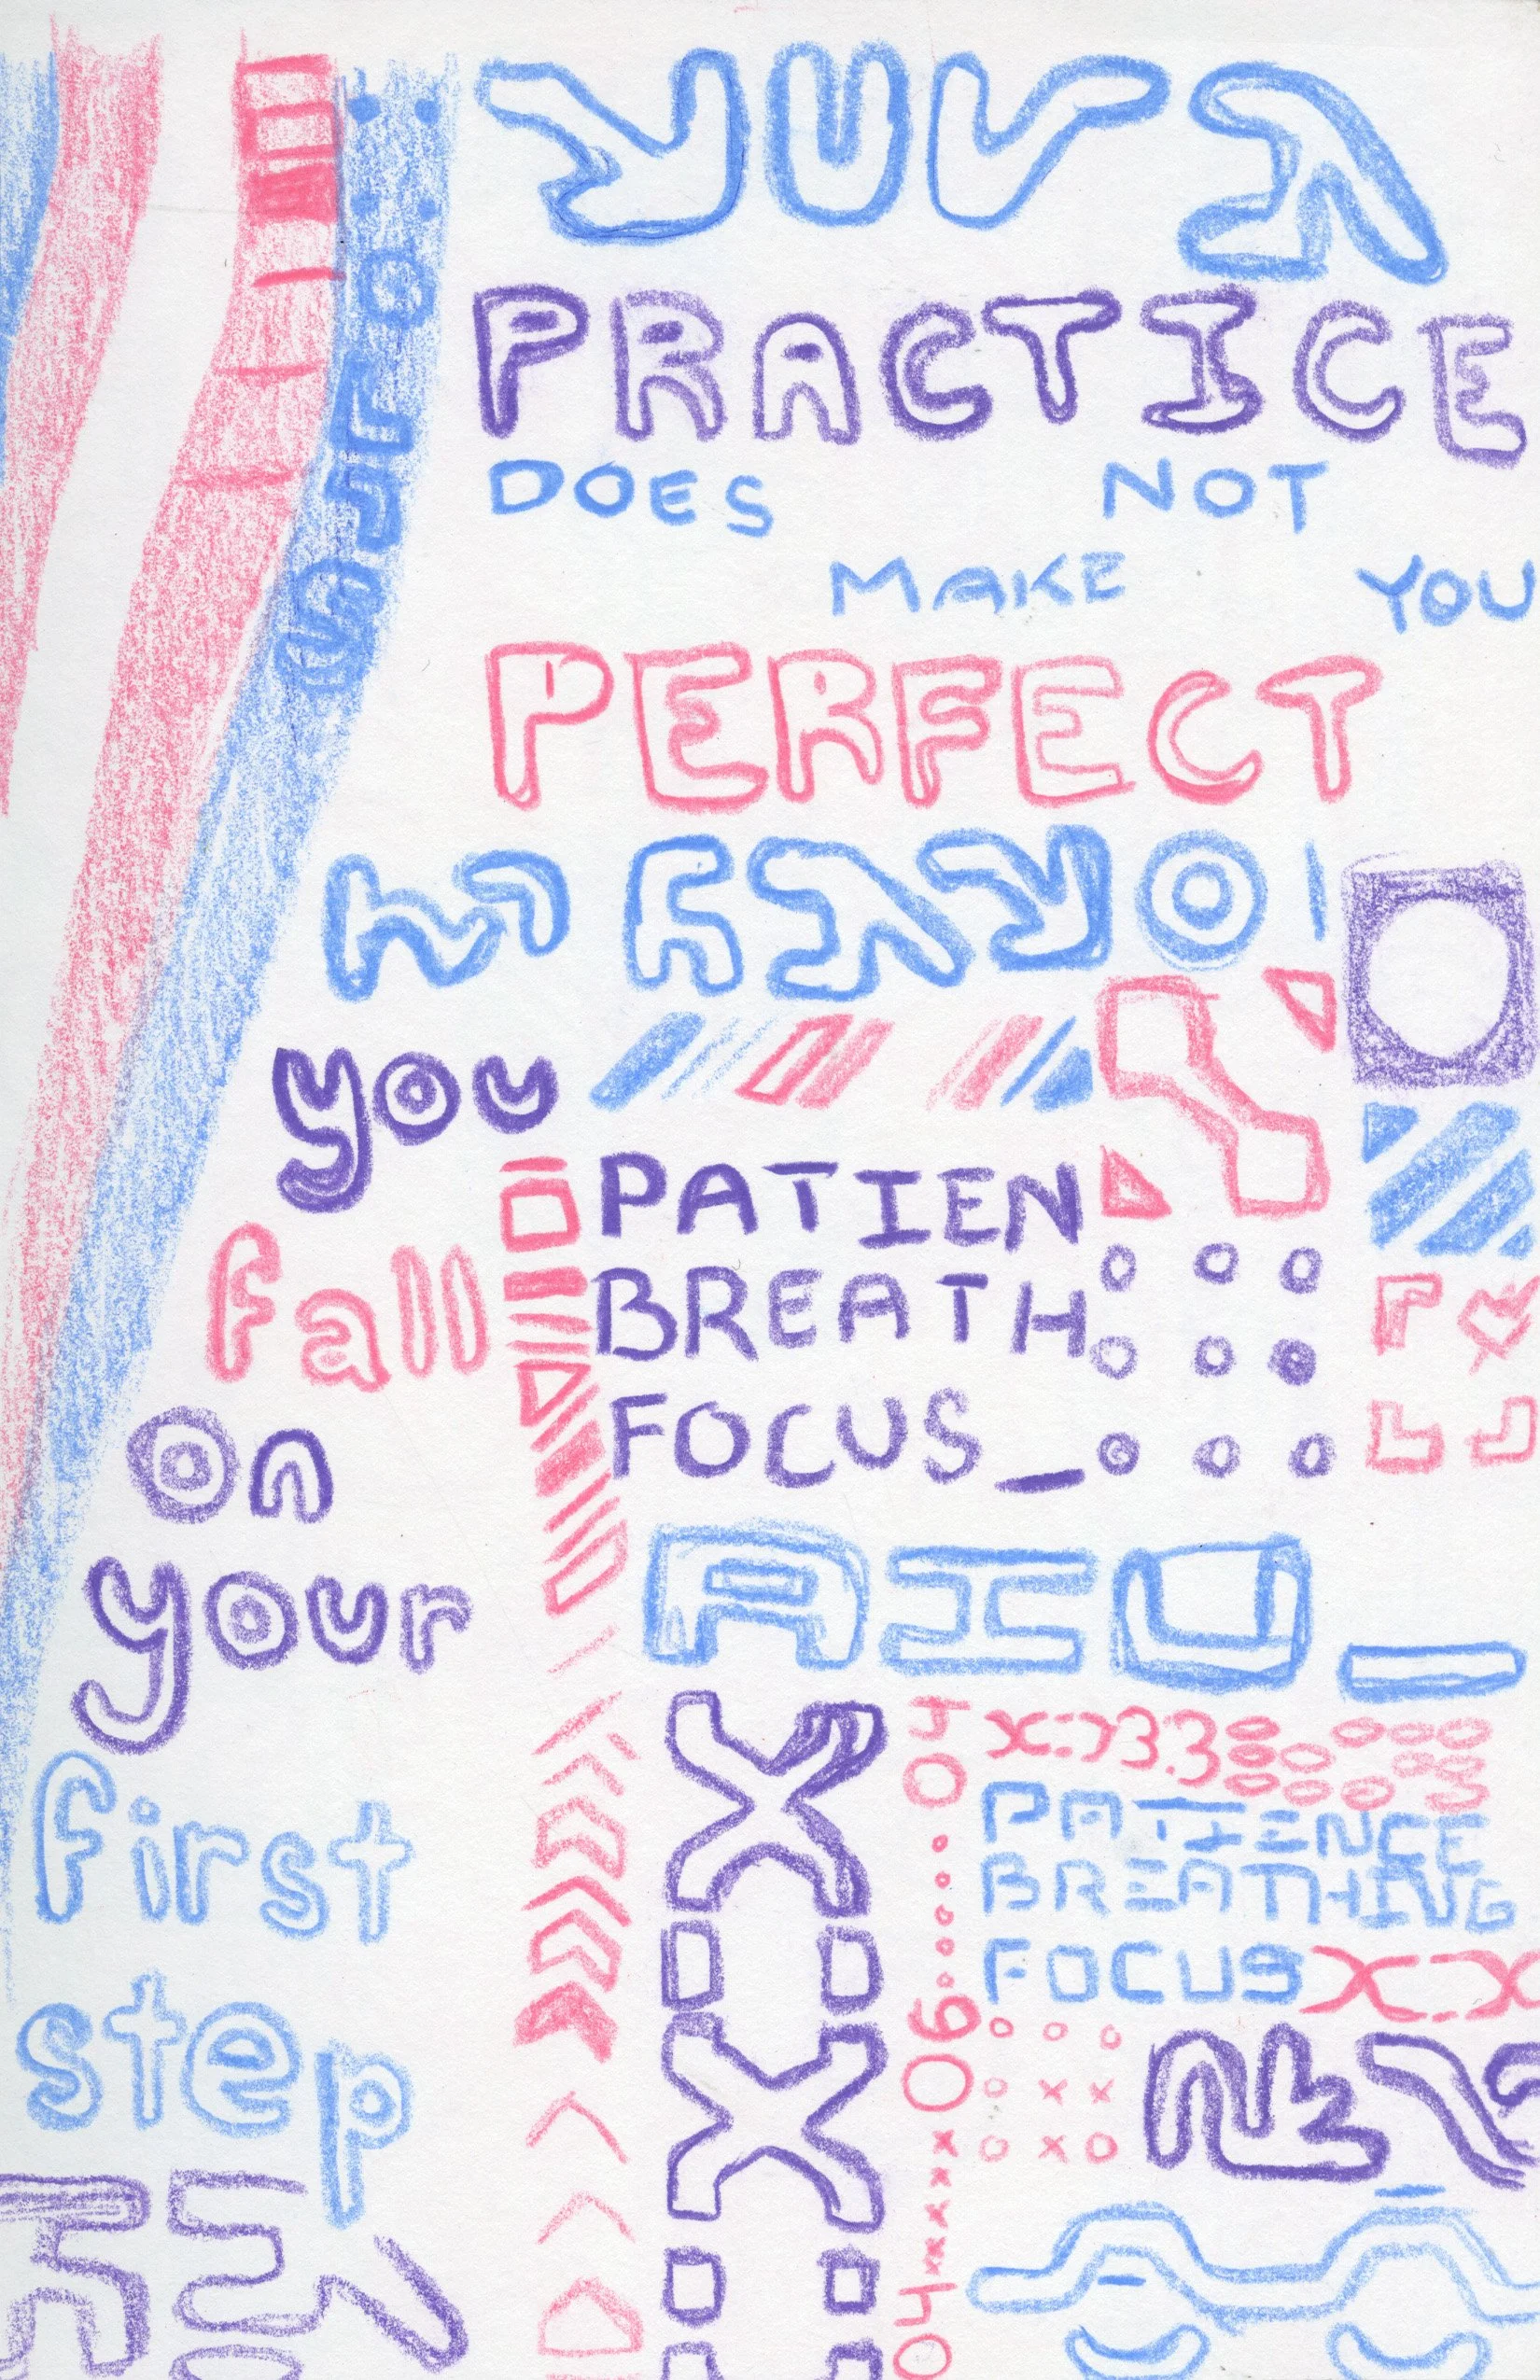 PRACTICE
DOES NOT
MAKE YOU
PERFECT
you
fall
on
your
first
step
PATIEN
BREATH
FOCUS_
AIU_
04
x:x3.3
PATIENCE
BREATHING
FOCUS
06
04